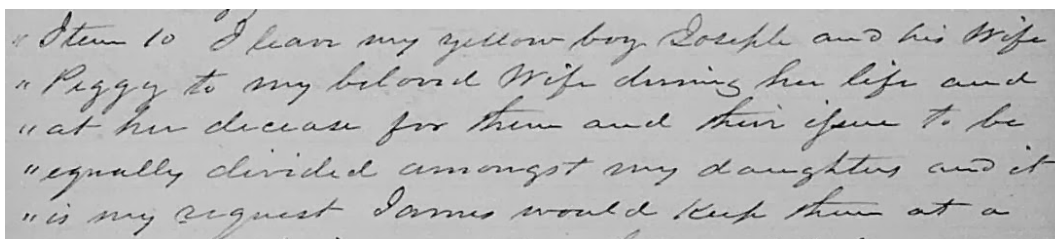 "Item 10 I leave my yellow boy Joseph and his Wife
"Peggy to my beloved Wife during her life and
"at her decease for them and their issue to be
"equally divided amongst my daughters and it
"is my request James would Keep them at a